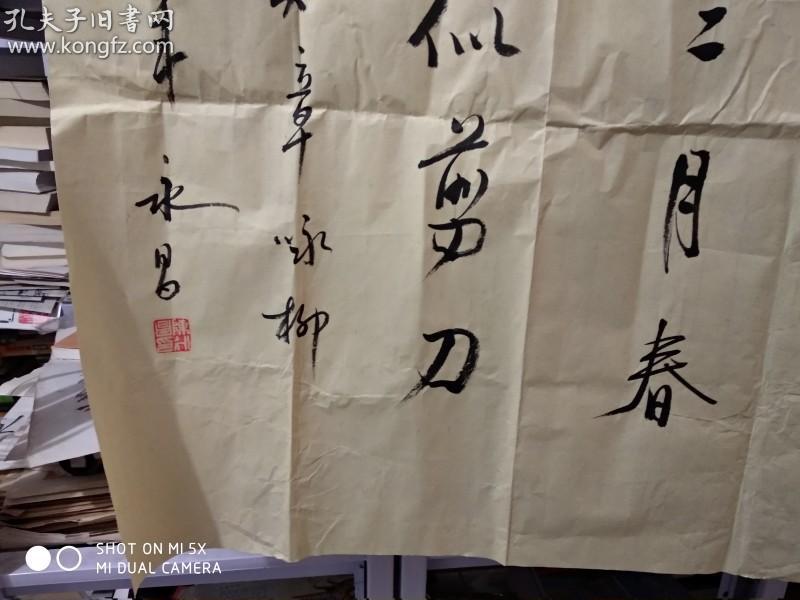 孔夫子旧书网
www.kongfz.com
二月春
似剪刀
章咏柳
年永昌
SHOT ON MI 5X
MI DUAL CAMERA